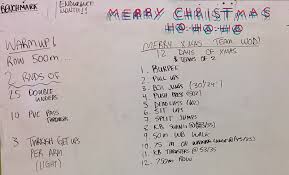 BENCHMARK
ENDURANCE
MERRY CHRISTMAS
HO-HO-HO
WARMUP!
ROW 500M...
2 RNDS OF
25 DOUBLE
UNDERS
10 PVC PASS
THROUGH
3 TURKISH GET UPS
PER ARM
(LIGHT)
MERRY XMAS TEAM WOD!
12 DAYS OF XMAS
TEAMS OF 2
1. BURPEE
2. PULL UPS
3. BOX JUMPS (30/24")
4. PUSH PRESS
5. DEAD LIFTS
6. SIT UPS
7. SPLIT JUMPS
8. KB SWING @ 53/35
9. 50M WB WALK
10. 25 M OH WALKING
11. KB THRUSTERS @ 53/35
12. 250M ROW